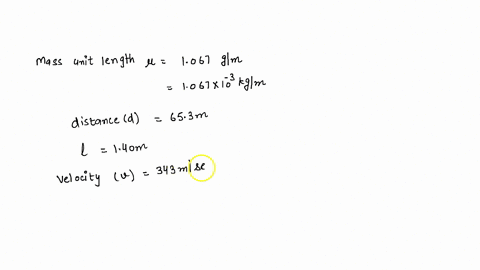 Mass unit length μ = 1.067 g/m
= 1.067×10⁻³ kg/m
distance(d) = 65.3m
l = 1.40m
Velocity (v) = 343m/se